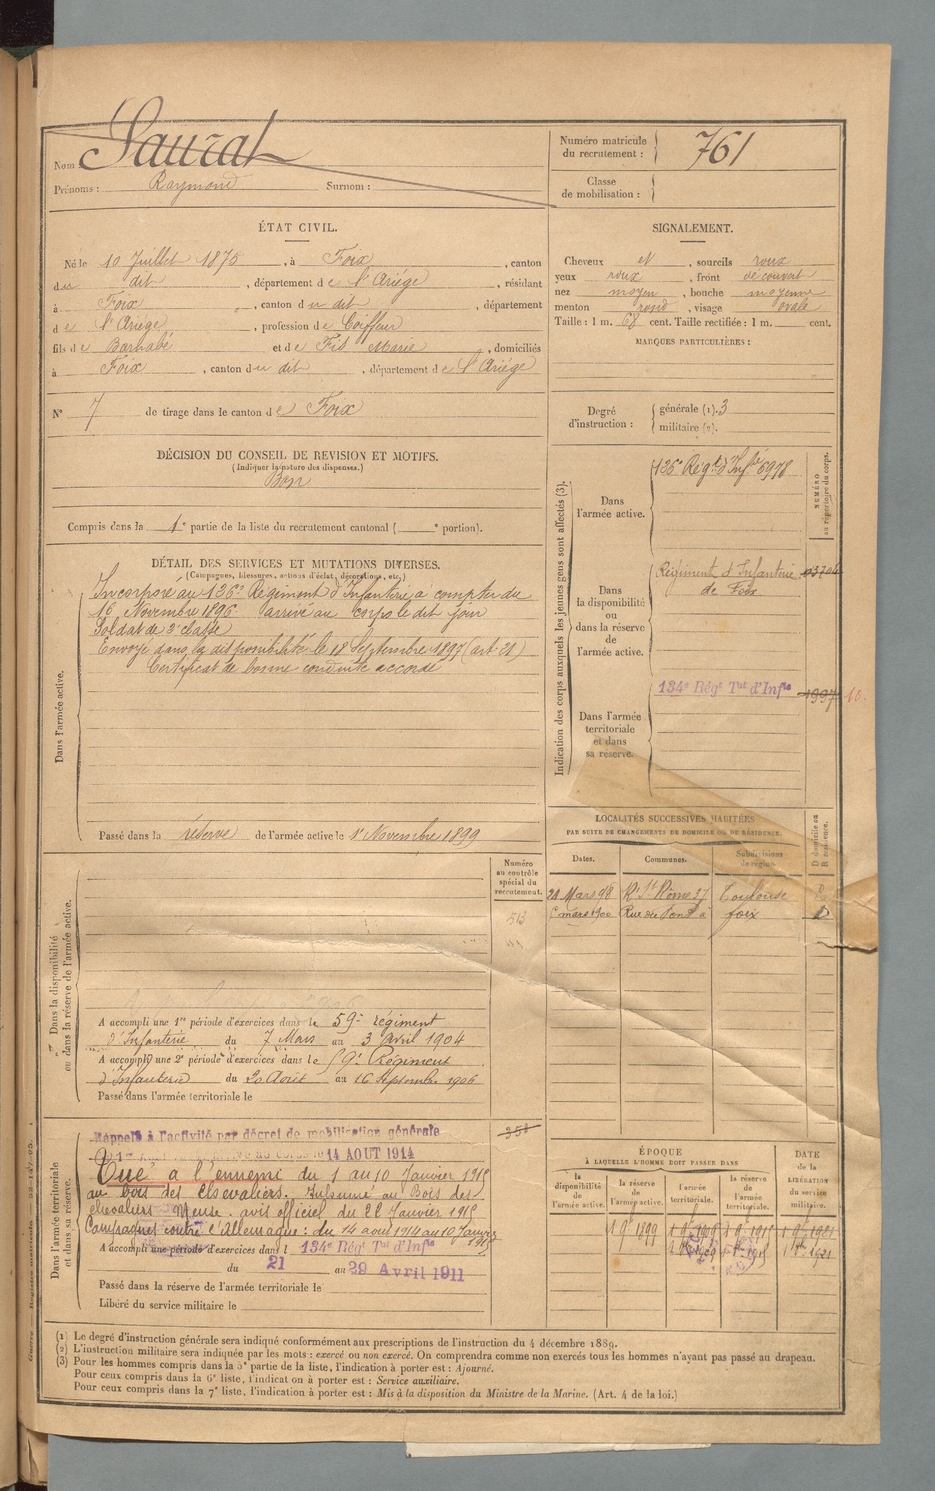 Nom : Saurat
Prénoms : Raymond Surnom :
Numéro matricule du recrutement : 761
Classe de mobilisation :
ÉTAT CIVIL.
Né le 10 Juillet 1875, à Foix, canton
du dit, département de l'Ariège, résidant
à Foix, canton du dit, département
de l'Ariège, profession de Coiffeur
fils de Barnabé et de Fis Marie, domiciliés
à Foix, canton du dit, département de l'Ariège
N° 7 de tirage dans le canton de Foix
SIGNALEMENT.
Cheveux et, sourcils roux
yeux roux, front découvert
nez moyen, bouche moyenne
menton rond, visage ovale
Taille : 1 m. 68 cent. Taille rectifiée : 1 m. cent.
MARQUES PARTICULIÈRES :
Degré d'instruction : générale (1). 3
militaire (2).
DÉCISION DU CONSEIL DE REVISION ET MOTIFS.
(Indiquer la nature des dispenses.)
Bon
Compris dans la 1e partie de la liste du recrutement cantonal ( e portion).
DÉTAIL DES SERVICES ET MUTATIONS DIVERSES.
(Campagnes, blessures, actions d'éclat, décorations, etc.)
Dans l'armée active.
Incorporé au 126e Régiment d'Infanterie à compter du
16 Novembre 1896 arrivé au corps le dit jour
Soldat de 2e classe
Envoyé dans la disponibilité le 18 Septembre 1897 (art 21)
Certificat de bonne conduite accordé
Passé dans la réserve de l'armée active le 1er Novembre 1899
Indication des corps auxquels les jeunes gens sont affectés (3).
NUMÉRO au répertoire du corps.
Dans l'armée active.
126e Régt d'Infie 6978
Dans la disponibilité ou dans la réserve de l'armée active.
Régiment d'Infanterie
de Foix
Dans l'armée territoriale et dans sa réserve.
134e Régt Tal d'Infie 1997
LOCALITÉS SUCCESSIVES HABITÉES
PAR SUITE DE CHANGEMENTS DE DOMICILE OU DE RÉSIDENCE.
D domicile ou R résidence.
Dates. Communes. Subdivisions de région.
21 Mars 98 R. St Rome 27 Toulouse
mars 1900 Rue du Pont à foix D
Dans la disponibilité ou dans la réserve de l'armée active.
Numéro au contrôle spécial du recrutement.
513
A accompli une 1re période d'exercices dans le 59e régiment
d'Infanterie du 7 Mars au 3 avril 1904
A accompli une 2e période d'exercices dans le 59e Régiment
d'Infanterie du 20 Août au 16 Septembre 1906
Passé dans l'armée territoriale le
Dans l'armée territoriale et dans sa réserve.
Rappelé à l'activité par décret de mobilisation générale
14 AOUT 1914
Tué à l'ennemi du 1 au 10 Janvier 1915
au bois des Chevaliers. Inhumé au Bois des
chevaliers Meuse. avis officiel du 22 Janvier 1915
Campagnes contre l'Allemagne : du 14 août 1914 au 10 Janvier
1915
A accompli une période d'exercices dans l 134e Régt Tal d'Infie
du 21 au 29 Avril 1911
Passé dans la réserve de l'armée territoriale le
Libéré du service militaire le
ÉPOQUE
À LAQUELLE L'HOMME DOIT PASSER DANS
DATE de la LIBÉRATION du service militaire.
la disponibilité de l'armée active. la réserve de l'armée active. l'armée territoriale. la réserve de l'armée territoriale.
(1) Le degré d'instruction générale sera indiqué conformément aux prescriptions de l'instruction du 4 décembre 1889.
(2) L'instruction militaire sera indiquée par les mots : exercé ou non exercé. On comprendra comme non exercés tous les hommes n'ayant pas passé au drapeau.
(3) Pour les hommes compris dans la 5e partie de la liste, l'indication à porter est : Ajourné.
Pour ceux compris dans la 6e liste, l'indication à porter est : Service auxiliaire.
Pour ceux compris dans la 7e liste, l'indication à porter est : Mis à la disposition du Ministre de la Marine. (Art. 4 de la loi.)